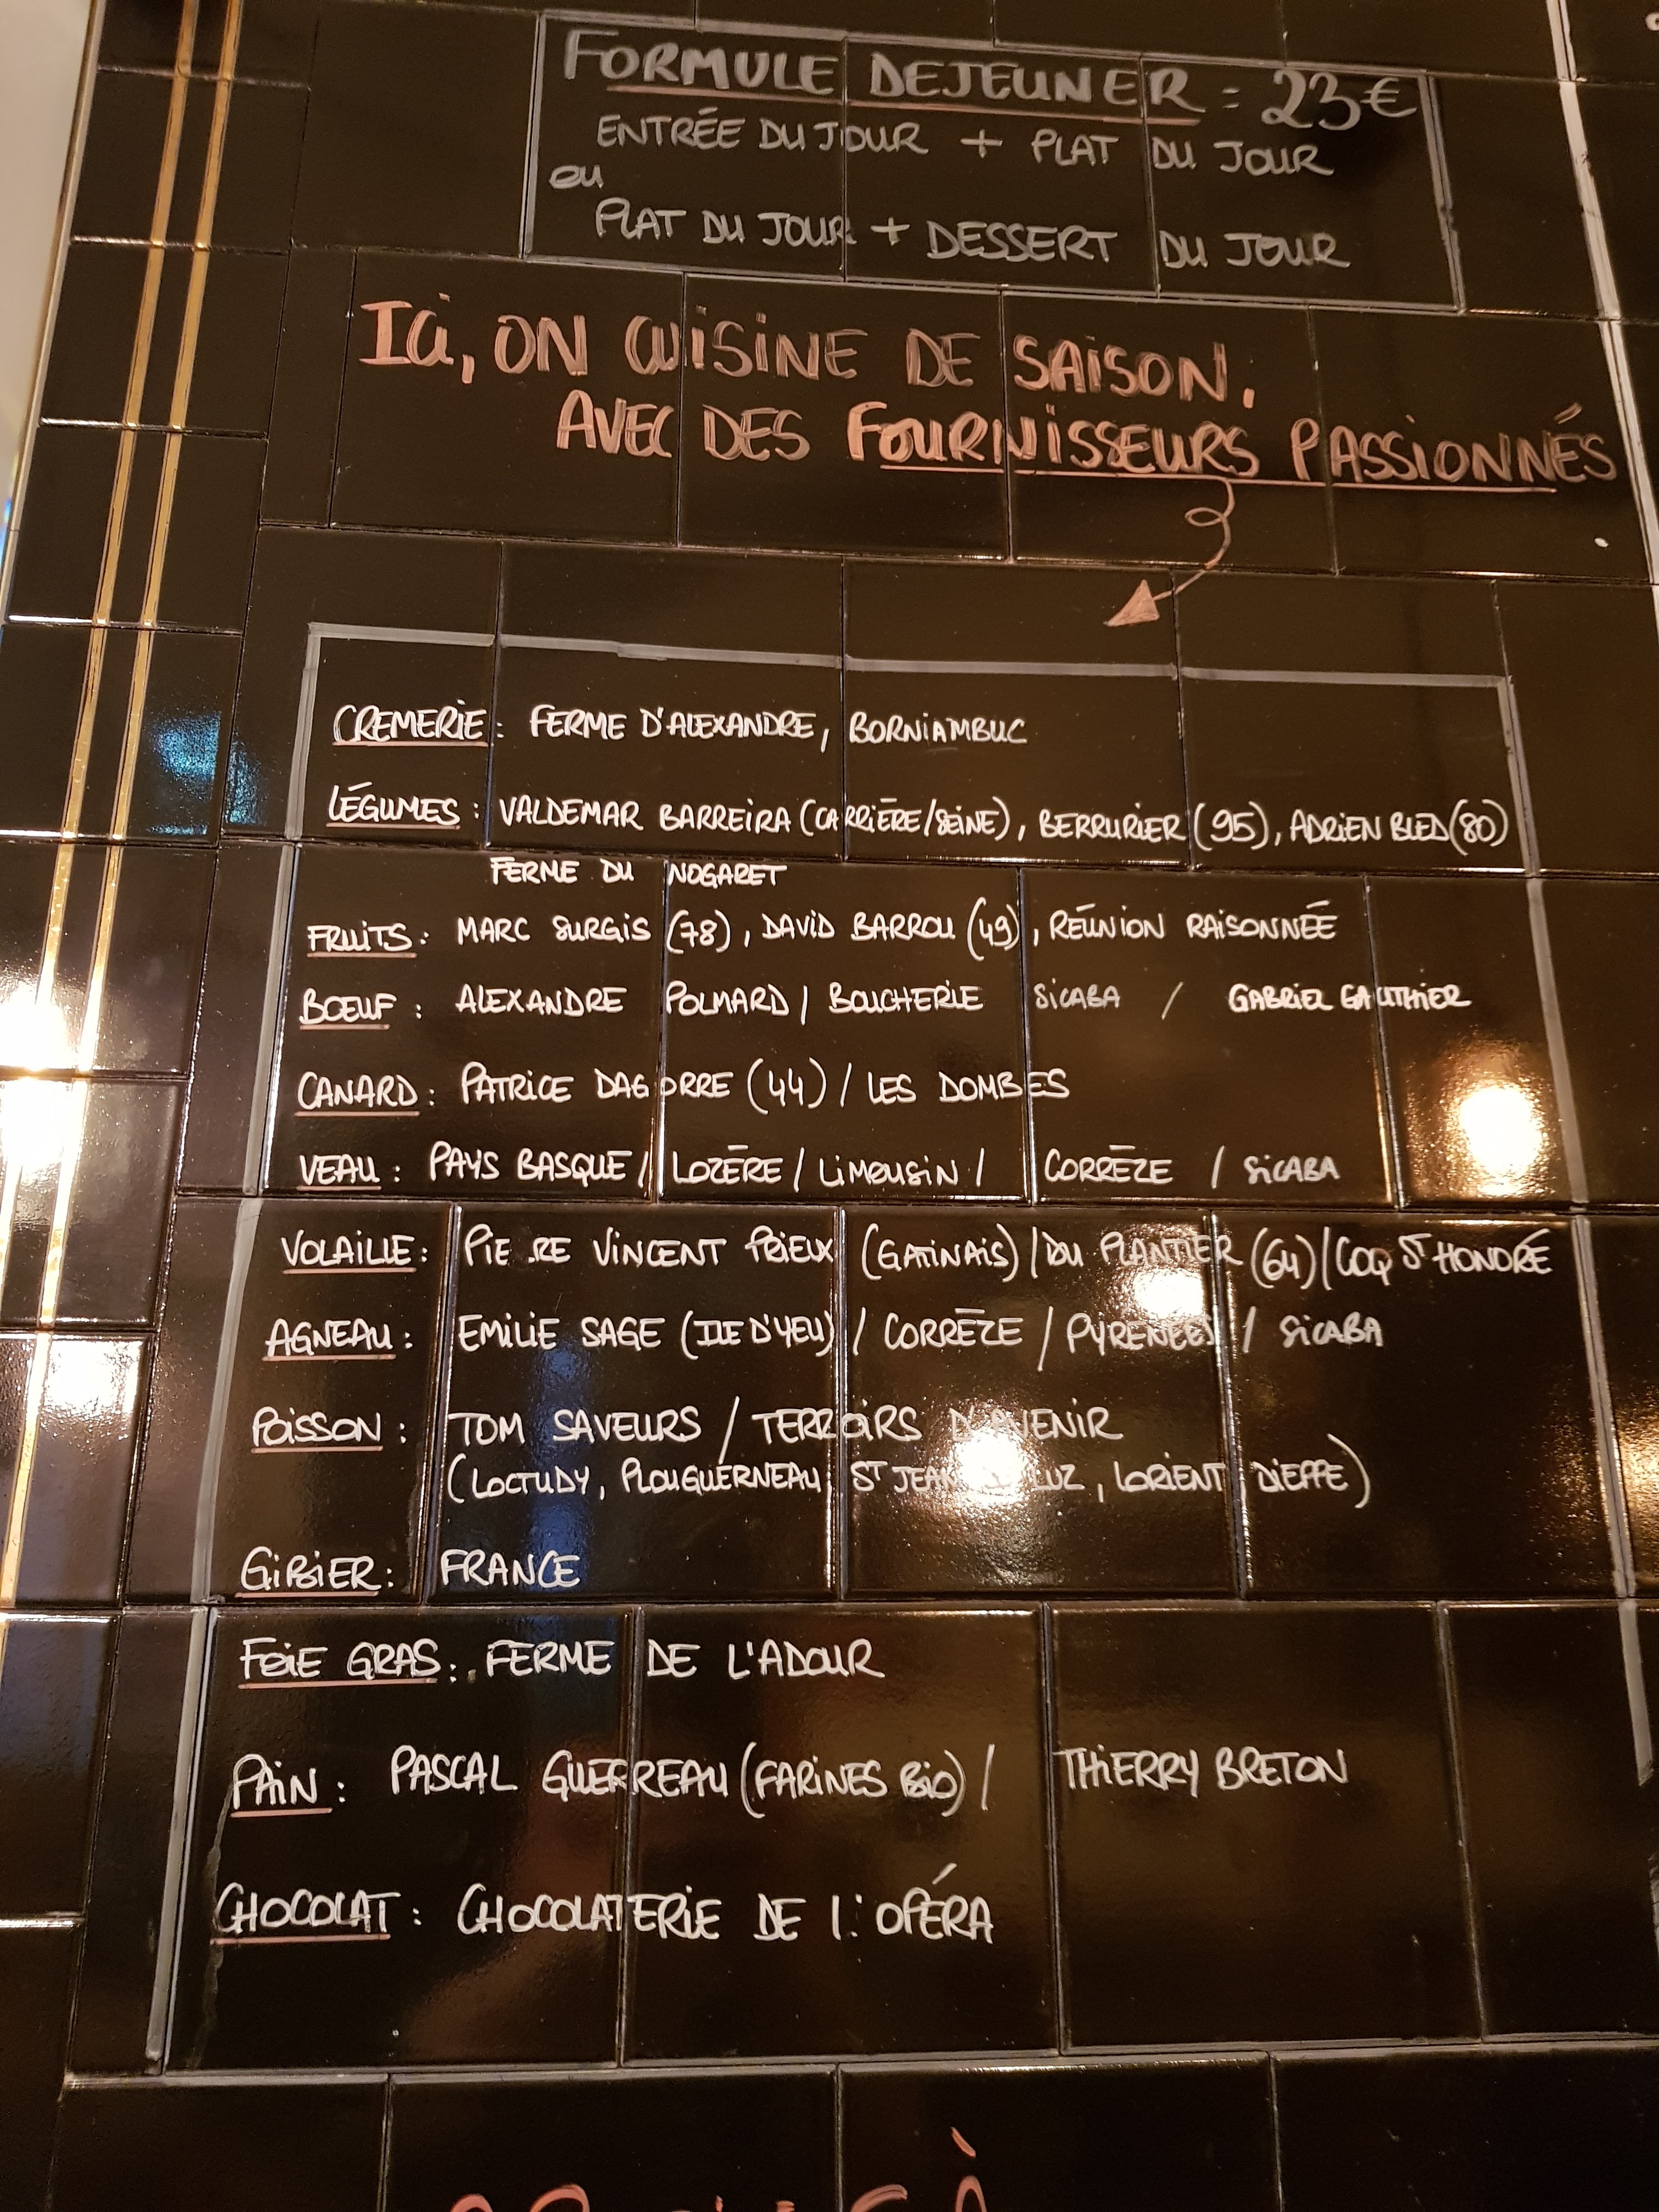 FORMULE DEJEUNER = 23€
ENTRÉE DU JOUR + PLAT DU JOUR
ou
PLAT DU JOUR + DESSERT DU JOUR
ICI, ON CUISINE DE SAISON.
AVEC DES FOURNISSEURS PASSIONNÉS
CREMERIE : FERME D'ALEXANDRE, BORNIAMBUC
LÉGUMES : VALDEMAR BARREIRA (CARRIÈRE/SEINE), BERRURIER (95), ADRIEN BLED (80)
FERME DU NOGARET
FRUITS : MARC SURGIS (78), DAVID BARROU (49), RÉUNION RAISONNÉE
BOEUF : ALEXANDRE POLMARD / BOUCHERIE SICABA / GABRIEL GAUTHIER
CANARD : PATRICE DAGORRE (44) / LES DOMBES
VEAU : PAYS BASQUE / LOZÈRE / LIMOUSIN / CORRÈZE / SICABA
VOLAILLE : PIE RE VINCENT PRIEUX (GATINAIS) / DU PLANTIER (64) / COQ ST HONORÉ
AGNEAU : EMILIE SAGE (ILE D'YEU) / CORRÈZE / PYRENÉES / SICABA
POISSON : TOM SAVEURS / TERROIRS D'AVENIR
(LOCTUDY, PLOUGUERNEAU, ST JEAN LUZ, LORIENT, DIEPPE)
GIBIER : FRANCE
FOIE GRAS : FERME DE L'ADOUR
PAIN : PASCAL GUERREAU (FARINES BIO) / THIERRY BRETON
CHOCOLAT : CHOCOLATERIE DE L'OPÉRA